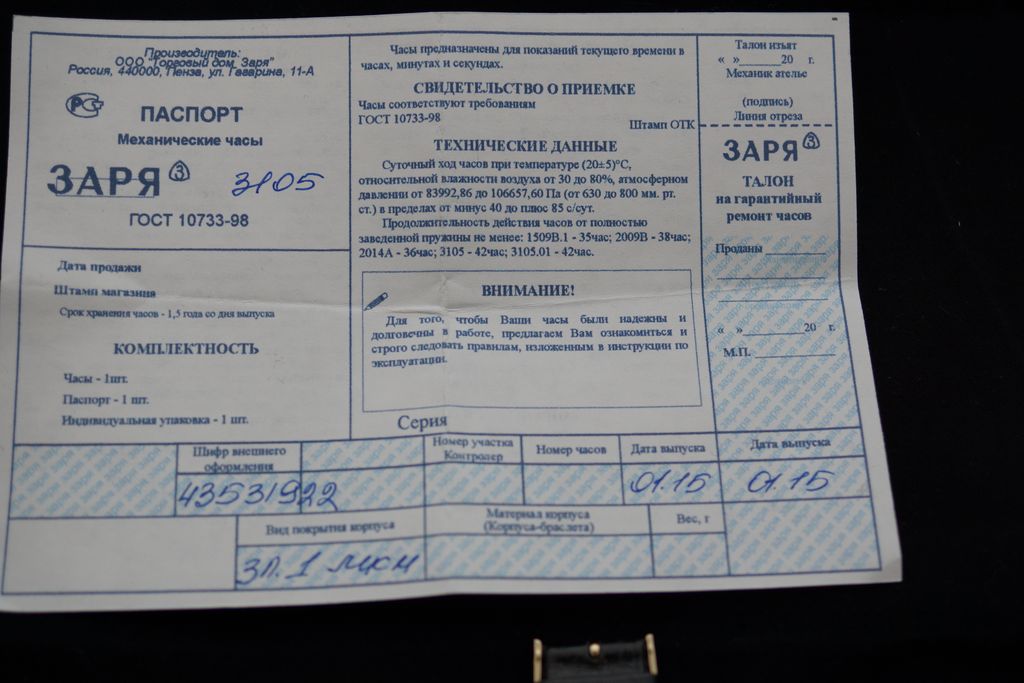 Производитель:
ООО "Торговый дом Заря"
Россия, 440000, Пенза, ул. Гагарина, 11-А
ПАСПОРТ
Механические часы
ЗАРЯ
3105
ГОСТ 10733-98
Дата продажи
Штамп магазина
Срок хранения часов - 1,5 года со дня выпуска
КОМПЛЕКТНОСТЬ
Часы - 1шт.
Паспорт - 1 шт.
Индивидуальная упаковка - 1 шт.
Часы предназначены для показаний текущего времени в
часах, минутах и секундах.
СВИДЕТЕЛЬСТВО О ПРИЕМКЕ
Часы соответствуют требованиям
ГОСТ 10733-98
Штамп ОТК
ТЕХНИЧЕСКИЕ ДАННЫЕ
Суточный ход часов при температуре (20±5)°С,
относительной влажности воздуха от 30 до 80%, атмосферном
давлении от 83992,86 до 106657,60 Па (от 630 до 800 мм. рт.
ст.) в пределах от минус 40 до плюс 85 с/сут.
Продолжительность действия часов от полностью
заведенной пружины не менее: 1509В.1 - 35час; 2009В - 38час;
2014А - 36час; 3105 - 42час; 3105.01 - 42час.
ВНИМАНИЕ!
Для того, чтобы Ваши часы были надежны и
долговечны в работе, предлагаем Вам ознакомиться и
строго следовать правилам, изложенным в инструкции по
эксплуатации.
Серия
Талон изъят
« »______20 г.
Механик ателье
(подпись)
Линия отреза
ЗАРЯ
ТАЛОН
на гарантийный
ремонт часов
Проданы
« »_________20 г.
М.П.
Шифр внешнего
оформления
Номер участка
Контролер
Номер часов
Дата выпуска
Дата выпуска
43531922
01.15
01.15
Вид покрытия корпуса
Материал корпуса
(Корпуса-браслета)
Вес, г
Зл. 1 мкм